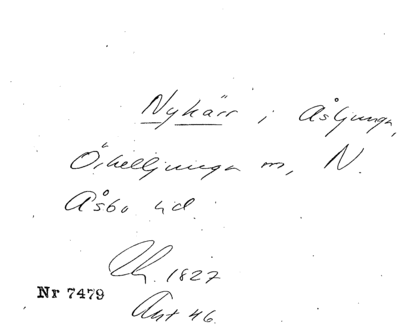 Nykärr i Åsljunga,
Örkelljunga sn, N.
Åsbo hd.
1827
Nr 7479
Ant 46.